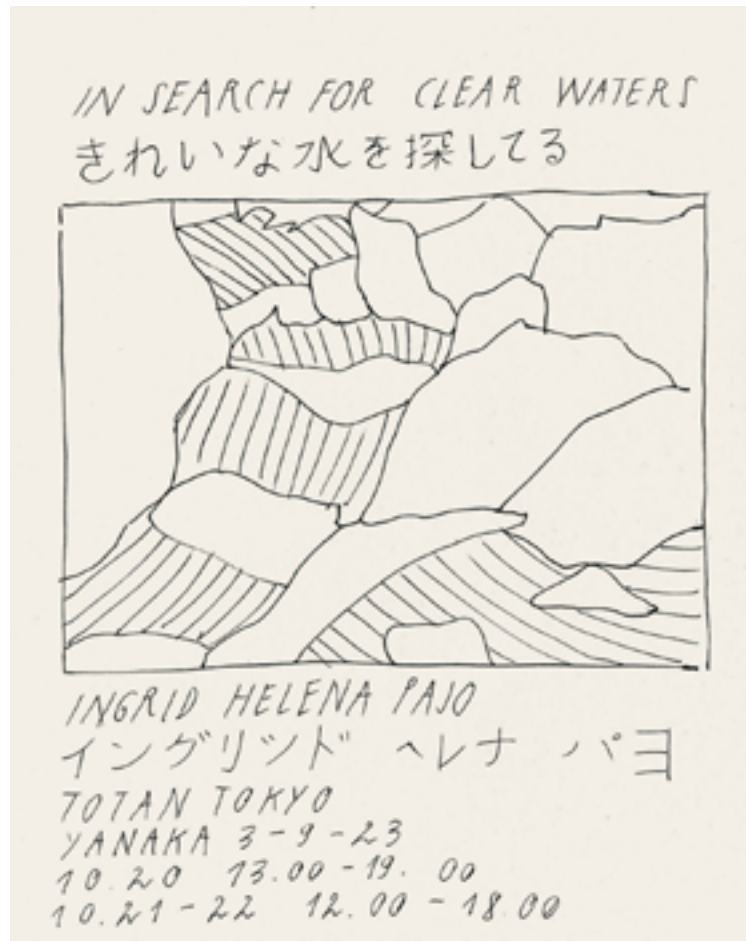 IN SEARCH FOR CLEAR WATERS
きれいな水を探してる
INGRID HELENA PAJO
イングリッド ヘレナ パヨ
TOTAN TOKYO
YANAKA 3-9-23
10.20 13.00-19.00
10.21-22 12.00-18.00